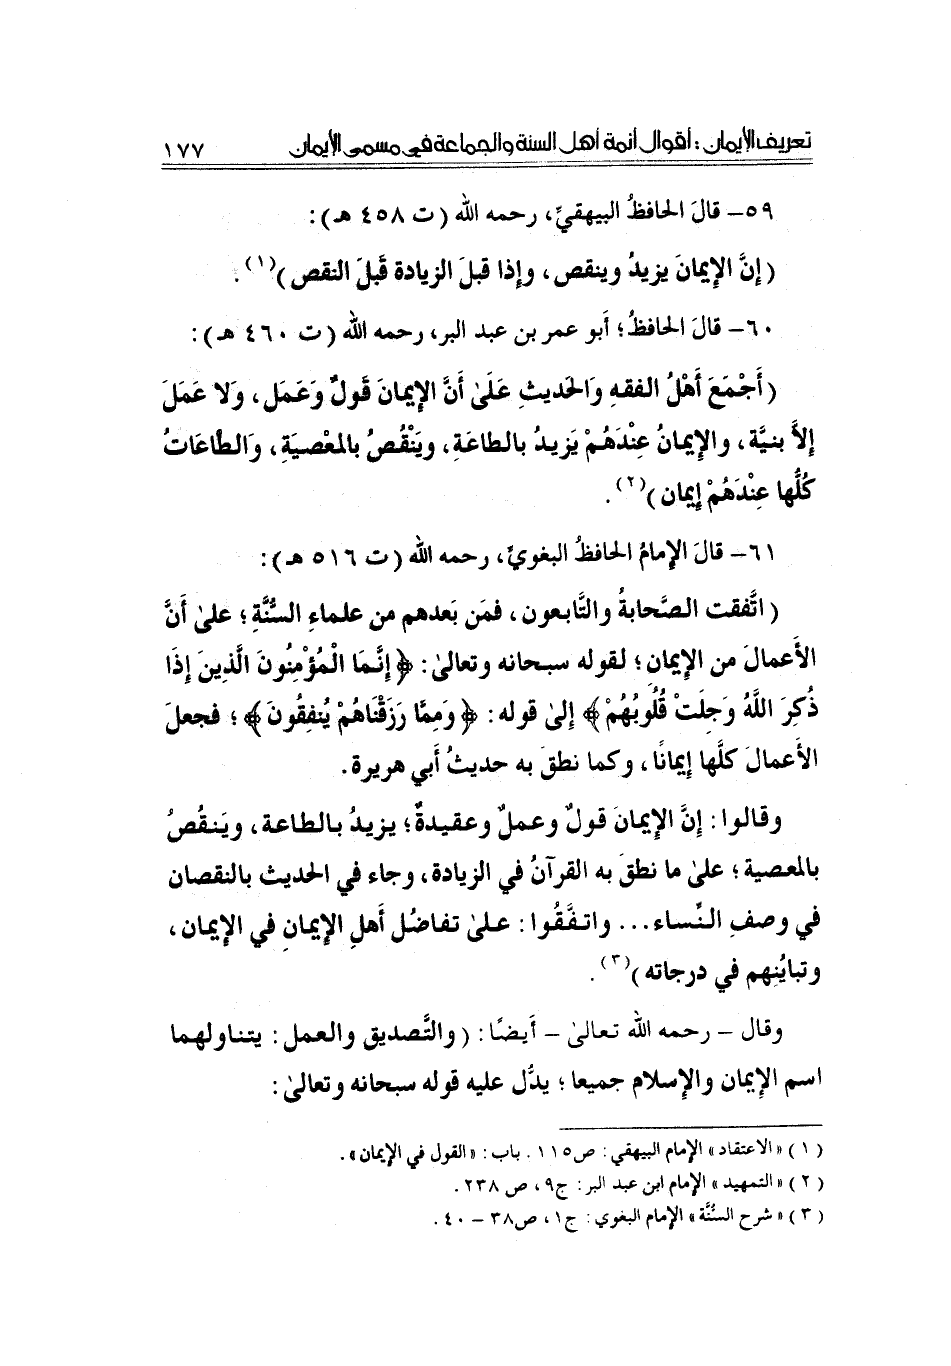 تعريف الإيمان : أقوال أئمة أهل السنة والجماعة في مسمى الإيمان ١٧٧
٥٩– قالَ الحافظُ البيهقيِّ، رحمه الله (ت ٤٥٨ هـ):
(إنَّ الإيمانَ يزيدُ وينقص، وإذا قبلَ الزيادة قَبلَ النقص)(١).
٦٠– قالَ الحافظُ؛ أبو عمر بن عبد البر، رحمه الله (ت ٤٦٠ هـ):
(أَجْمَعَ أَهْلُ الفقهِ وَالحَديثِ عَلَىٰ أنَّ الإيمانَ قَولٌ وَعَمَل، وَلا عَمَلَ
إلاَّ بنيَّة، والإيمانُ عِنْدَهُمْ يَزيدُ بالطاعَة، ويَنْقُصُ بالمَعْصيَةِ، وَالطاعَاتُ
كُلُّها عِنْدَهُمْ إيمان)(٢).
٦١– قالَ الإمامُ الحافظُ البغويِّ، رحمه الله (ت ٥١٦ هـ):
(اتَّفقت الصَّحابةُ والتَّابعون، فمَن بَعدهم من علماءِ السُّنَّةِ؛ علىٰ أَنَّ
الأَعمالَ من الإيمان؛ لقوله سبحانه وتعالىٰ: ﴿إنَّمَا الْمُؤْمِنُونَ الَّذِينَ إذَا
ذُكِرَ اللَّهُ وَجِلَتْ قُلُوبُهُمْ﴾ إلىٰ قوله: ﴿وَمِمَّا رَزَقْنَاهُمْ يُنفِقُونَ﴾؛ فجعلَ
الأَعمالَ كلَّها إيمانًا، وكما نطقَ به حديثُ أَبي هريرة.
وقالوا: إنَّ الإيمانَ قولٌ وعملٌ وعقيدةٌ؛ يزيدُ بالطاعة، ويَنقُصُ
بالمعصية؛ علىٰ ما نطقَ به القرآنُ في الزيادة، وجاء في الحديث بالنقصان
في وصفِ النِّساء... واتفَّقُوا: علىٰ تفاضُل أهلِ الإيمانِ في الإيمان،
وتبايُنِهم في درجاته)(٣).
وقال – رحمه الله تعالىٰ – أَيضًا: (والتَّصديق والعمل: يتناولهما
اسم الإيمان والإسلام جميعا؛ يدُّل عليه قوله سبحانه وتعالىٰ:
(١) «الاعتقاد» الإمام البيهقي: ص١١٥. باب: «القول في الإيمان».
(٢) «التمهيد» الإمام ابن عبد البر: ج٩، ص ٢٣٨.
(٣) «شرح السُّنَّة» الإمام البغوي: ج١، ص٣٨ – ٤٠.